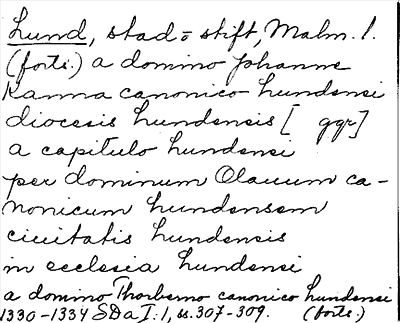 Lund, stad = stift, Malm. l.
(forts.) a domino Johanne
Kanna canonico lundensi
diocesis lundensis [ ggr]
a capitulo lundensi
per dominum Olauum ca-
nonicum lundensem
ciuitatis lundensis
in ecclesia lundensi
a domino Thorberno canonico lundensi
1330-1334 SDa I:1, ss. 307-309. (forts.)